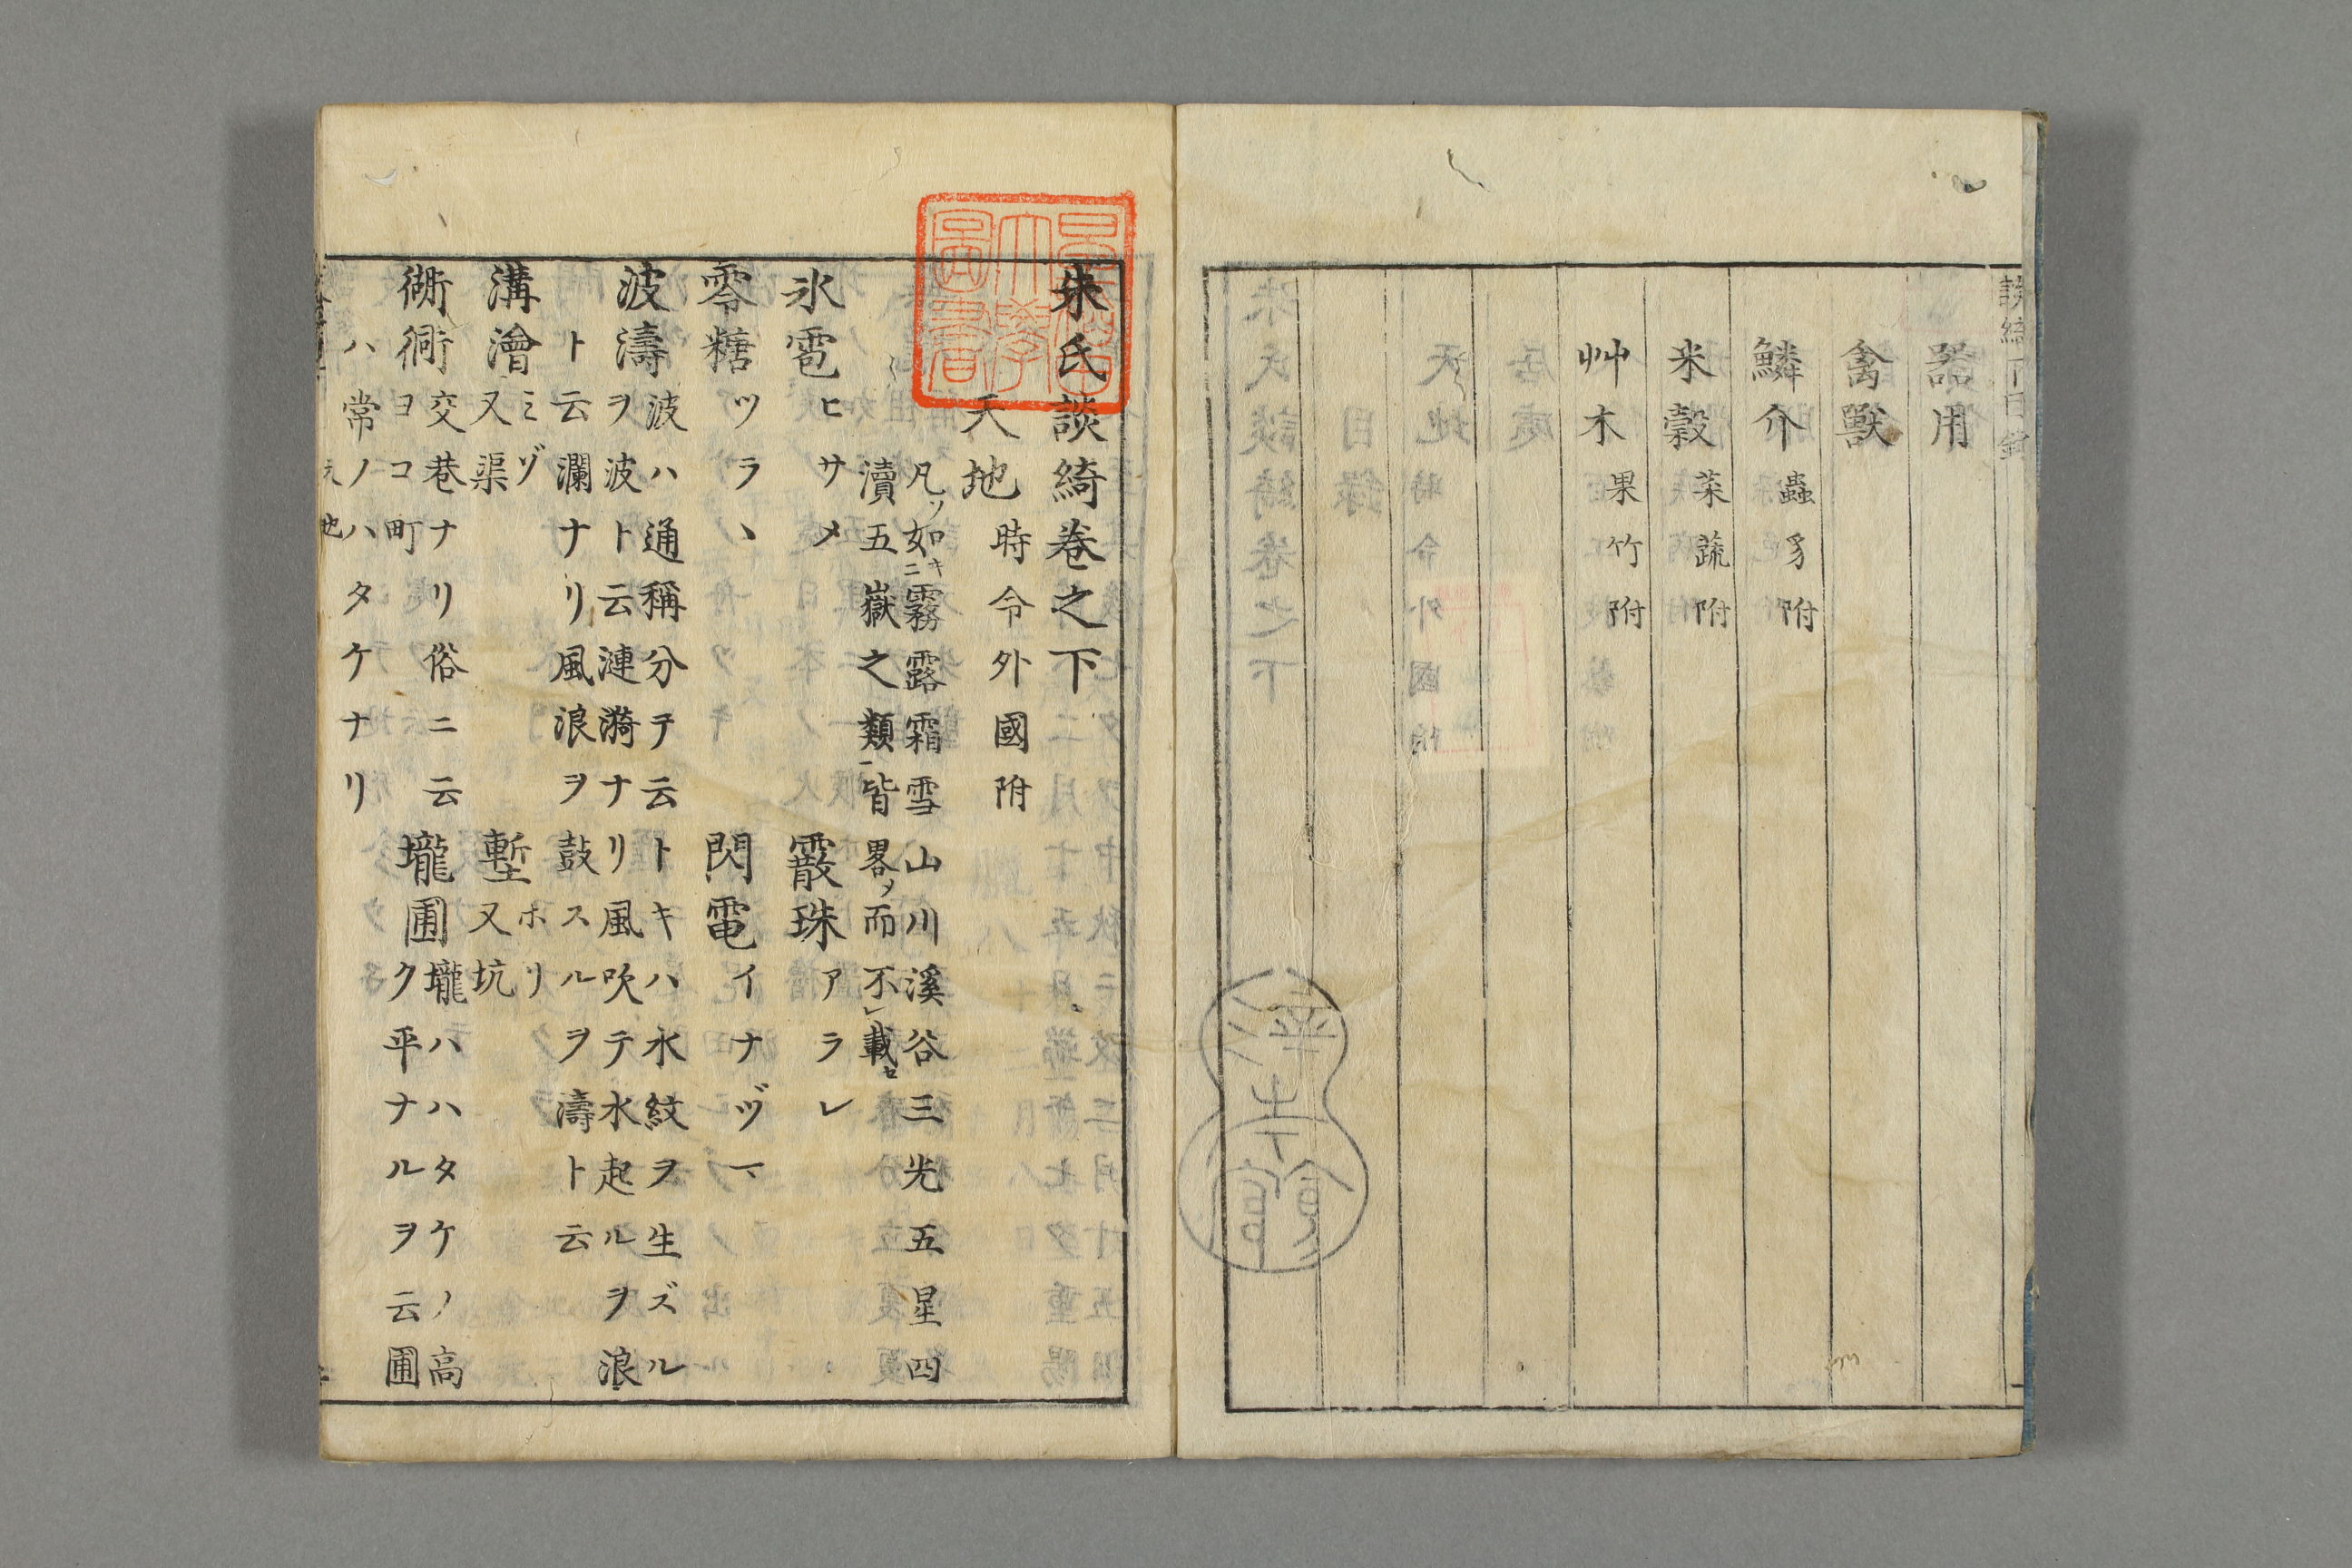 器用
禽獸
鱗介 蟲豸附
米穀 菜蔬附
艸木 果竹附
朱氏談綺卷之下
天地 時令外國附
凡ソ如キニ霧露霜雪山川溪谷三光五星四
瀆五嶽之類一皆畧ノ而不レ載セ
氷雹 ヒサメ 霰珠 アラレ
零糖 ツラヽ 閃電 イナヅマ
波濤 波ハ通稱分テ云トキハ水紋ヲ生ズル
ヲ波ト云漣漪ナリ風吹テ水起ルヲ浪
ト云瀾ナリ風浪ヲ鼓スルヲ濤ト云
溝澮 ミゾ 又渠 塹 ホリ 又坑
衚衕 交巷ナリ俗ニ云
ヨコ町
壠圃 壠ハハタケノ高
ク平ナルヲ云圃
ハ常ノハタケナリ